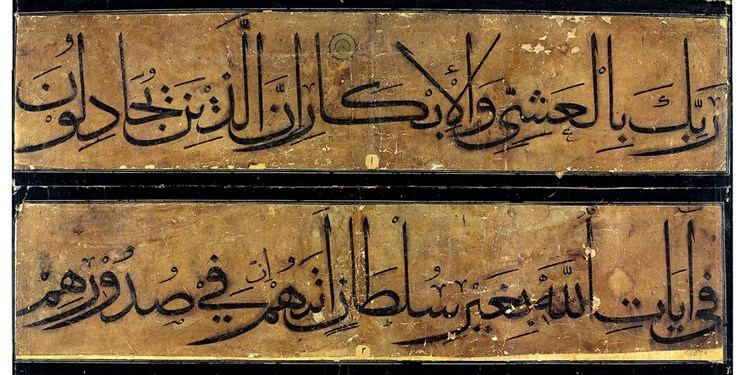 رَبِّكَ بِالْعَشِيِّ وَالْإِبْكَارِ اِنَّ الَّذِينَ يُجَادِلُونَ
١
فِي آيَاتِ اللَّهِ بِغَيْرِ سُلْطَانٍ اَتٰهُمْ اِنْ فِي صُدُورِهِمْ
٢